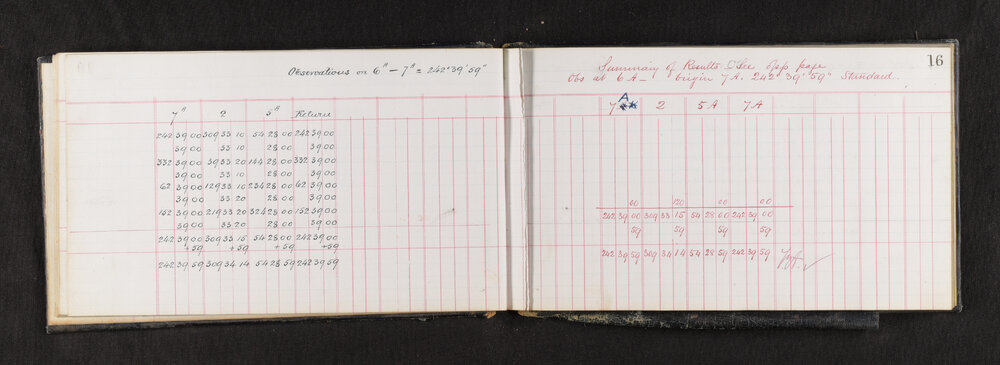 Observations on 6ᴬ – 7ᴬ = 242°39'59"
7ᴬ 2 5ᴬ Return
242 39 00 309 33 10 54 28 00 242 39 00
39 00 33 10 28 00 39 00
332 39 00 39 33 20 144 28 00 332 39 00
39 00 33 10 28 00 39 00
62 39 00 129 33 10 234 28 00 62 39 00
39 00 33 20 28 00 39 00
152 39 00 219 33 20 324 28 00 152 39 00
39 00 33 20 28 00 39 00
242 39 00 309 33 15 54 28 00 242 39 00
+59 +59 +59 +59
242 39 59 309 34 14 54 28 59 242 39 59
16
Summary of Results See opp page
Obs at 6A – origin 7A. 242°39'59" Standard.
7 A 2 5A 7A
00 120 00 00
242 39 00 309 33 15 54 28 00 242 39 00
59 59 59 59
242 39 59 309 34 14 54 28 59 242 39 59